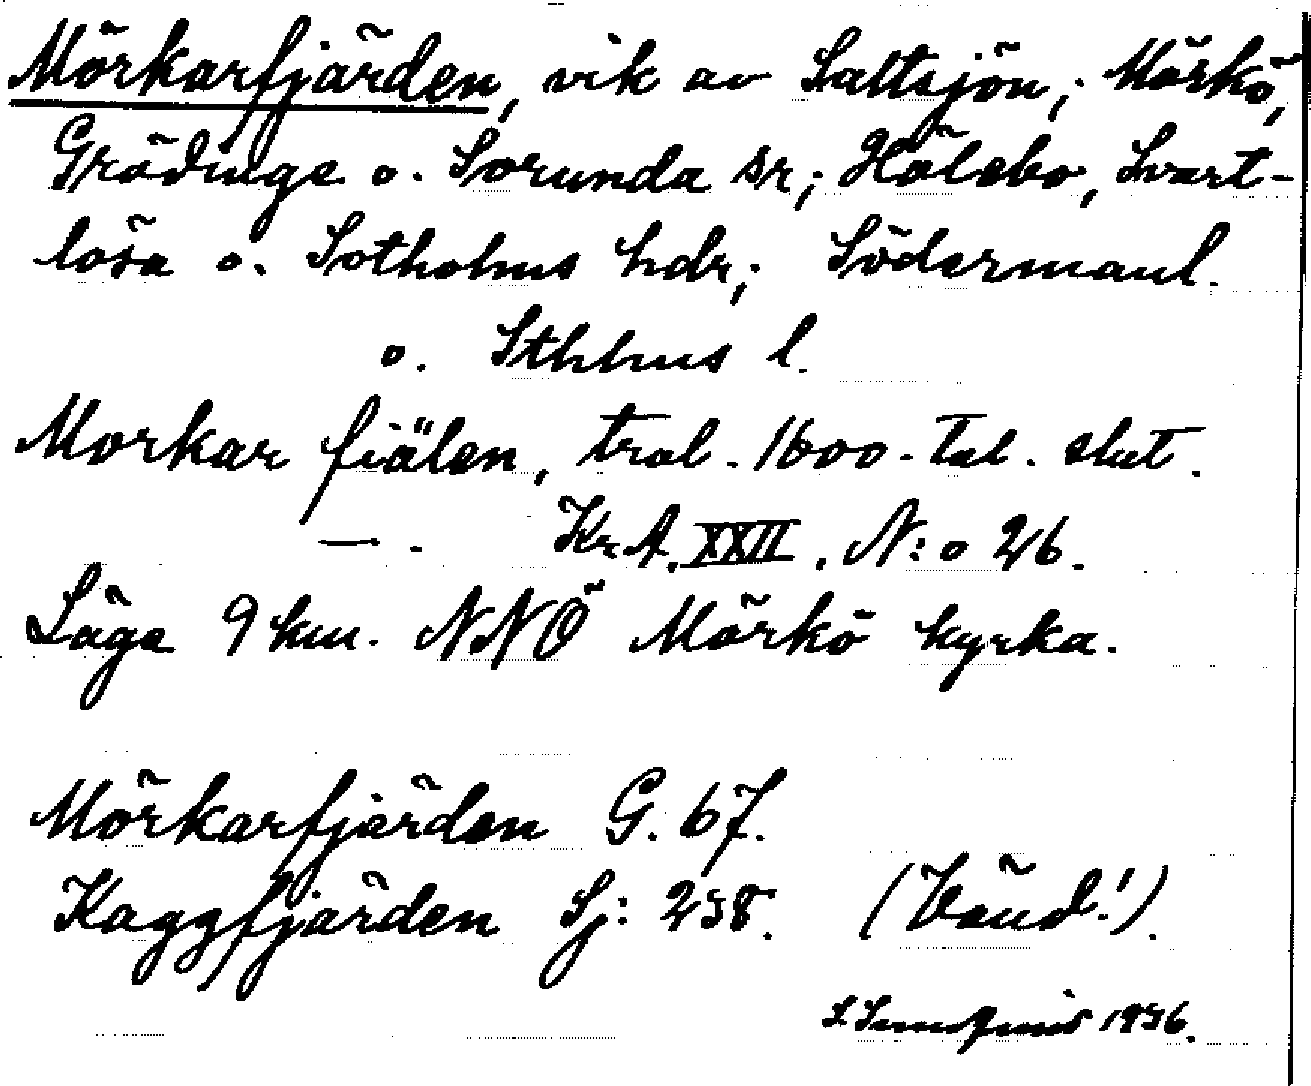 Mörkarfjärden, vik av Saltsjön; Mörkö,
Grödinge o. Sorunda sr; Hölebo, Svart-
lösa o. Sotholms hdr; Södermanl.
o. Sthlms l.
Morkar fiälen, trol. 1600-tal. slut.
— . KrA. XXII. N:o 26.
Läge 9 km. NNÖ Mörkö kyrka.
Mörkarfjärden G. 67.
Kaggfjärden Sj: 238. (Vänd!).
1936.